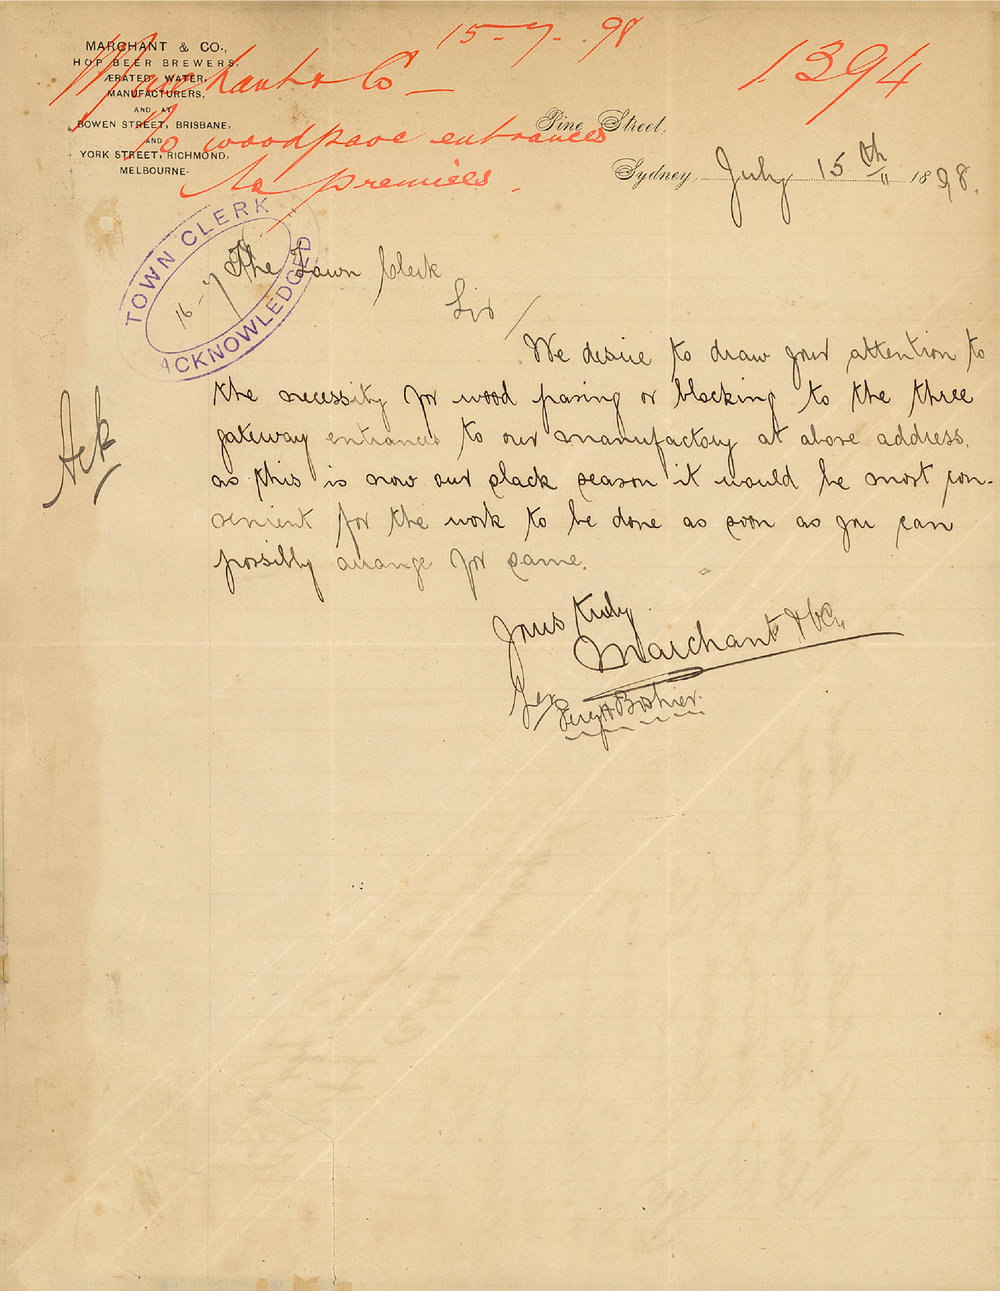 15-7-98
1394
MARCHANT & CO.,
HOP BEER BREWERS,
ÆRATED WATER,
MANUFACTURERS,
AND AT
BOWEN STREET, BRISBANE,
AND
YORK STREET, RICHMOND,
MELBOURNE.
Marchant & Co —
To woodpave entrances
to premises.
Pine Street,
Sydney, July 15th 1898.
TOWN CLERK
16-7
ACKNOWLEDGED
The Town Clerk
Sir/
We desire to draw your attention to
the necessity for wood paving or blocking to the three
gateway entrances to our manufactory at above address,
as this is now our slack season it would be most con-
venient for the work to be done as soon as you can
possibly arrange for same.
Ack
Yours truly
Marchant & Co.